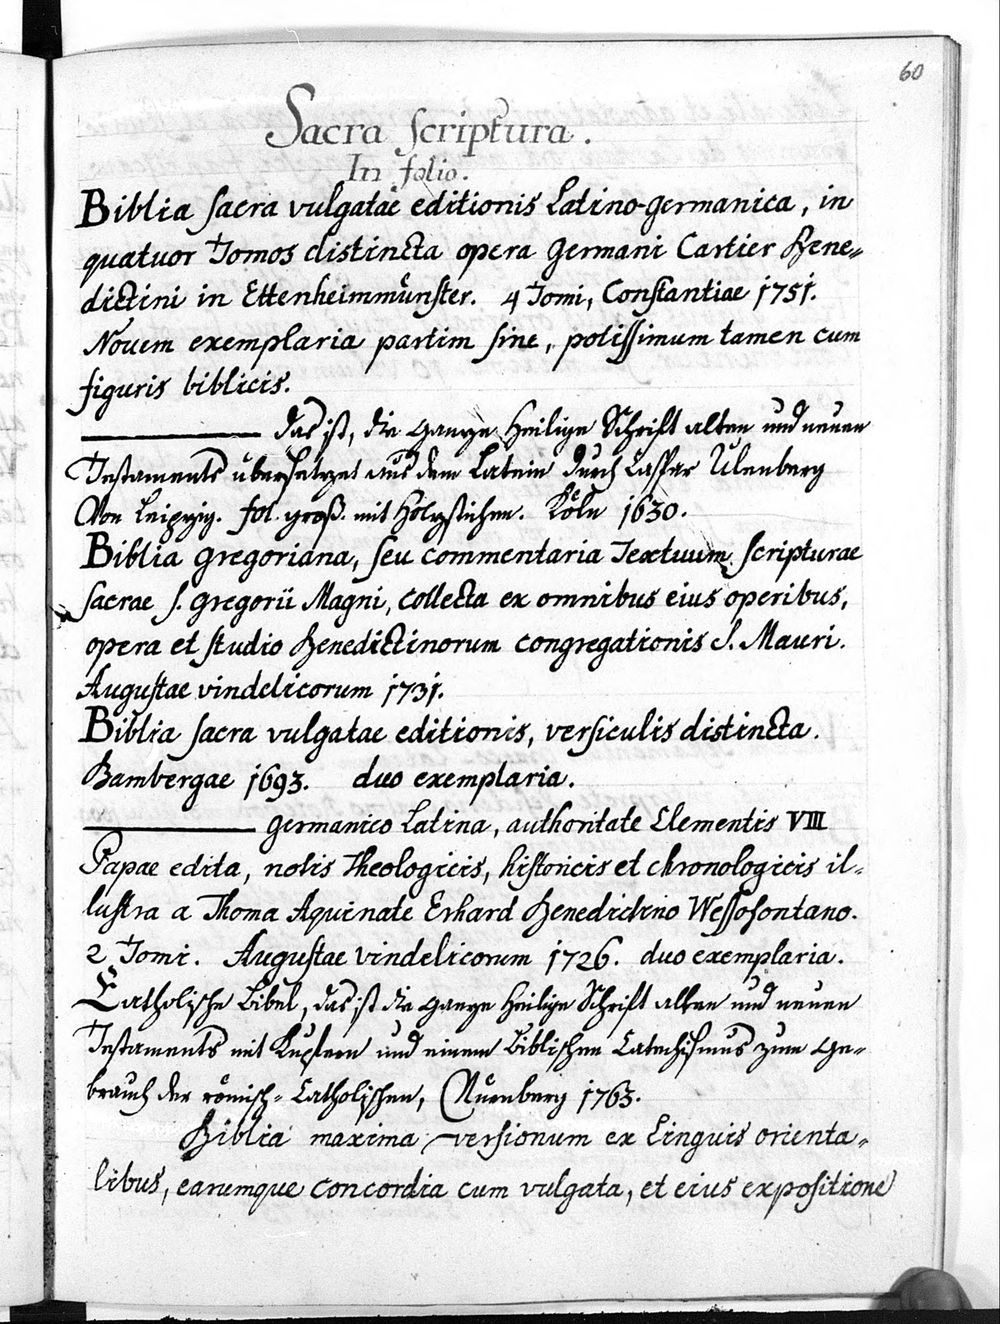 60
Sacra scriptura.
In folio.
Biblia sacra vulgatae editionis Latino-germanica, in
quatuor Tomos distincta opera Germani Cartier Bene-
dictini in Ettenheimmünster. 4 Tomi, Constantiae 1751.
Novem exemplaria partim sine, potissimum tamen cum
figuris biblicis.
das ist, die gantze Heilige Schrift alten und neuen
Testaments übersetzet aus dem Latein durch Caspar Ulenberg
Von Leipzig. fol. groß. mit Holzstichen. Köln 1630.
Biblia gregoriana, seu commentaria Textuum scripturae
sacrae S. Gregorii Magni, collecta ex omnibus eius operibus,
opera et studio Benedictinorum congregationis S. Mauri.
Augustae vindelicorum 1731.
Biblia sacra vulgatae editionis, versiculis distincta.
Bambergae 1693. duo exemplaria.
germanico Latina, authoritate Clementis VIII
Papae edita, notis theologicis, historicis et chronologicis il-
lustra a Thoma Aquinate Erhard Benedictino Wessofontano.
2 Tomi. Augustae vindelicorum 1726. duo exemplaria.
Catholische Bibel, das ist die gantze Heilige Schrift alten und neuen
Testaments mit Kupfern und einem Biblischen Catechismus zum Ge-
brauch der römisch-Catholischen, Nürnberg 1763.
Biblia maxima versionum ex Linguis orienta-
libus, earumque concordia cum vulgata, et eius expositione